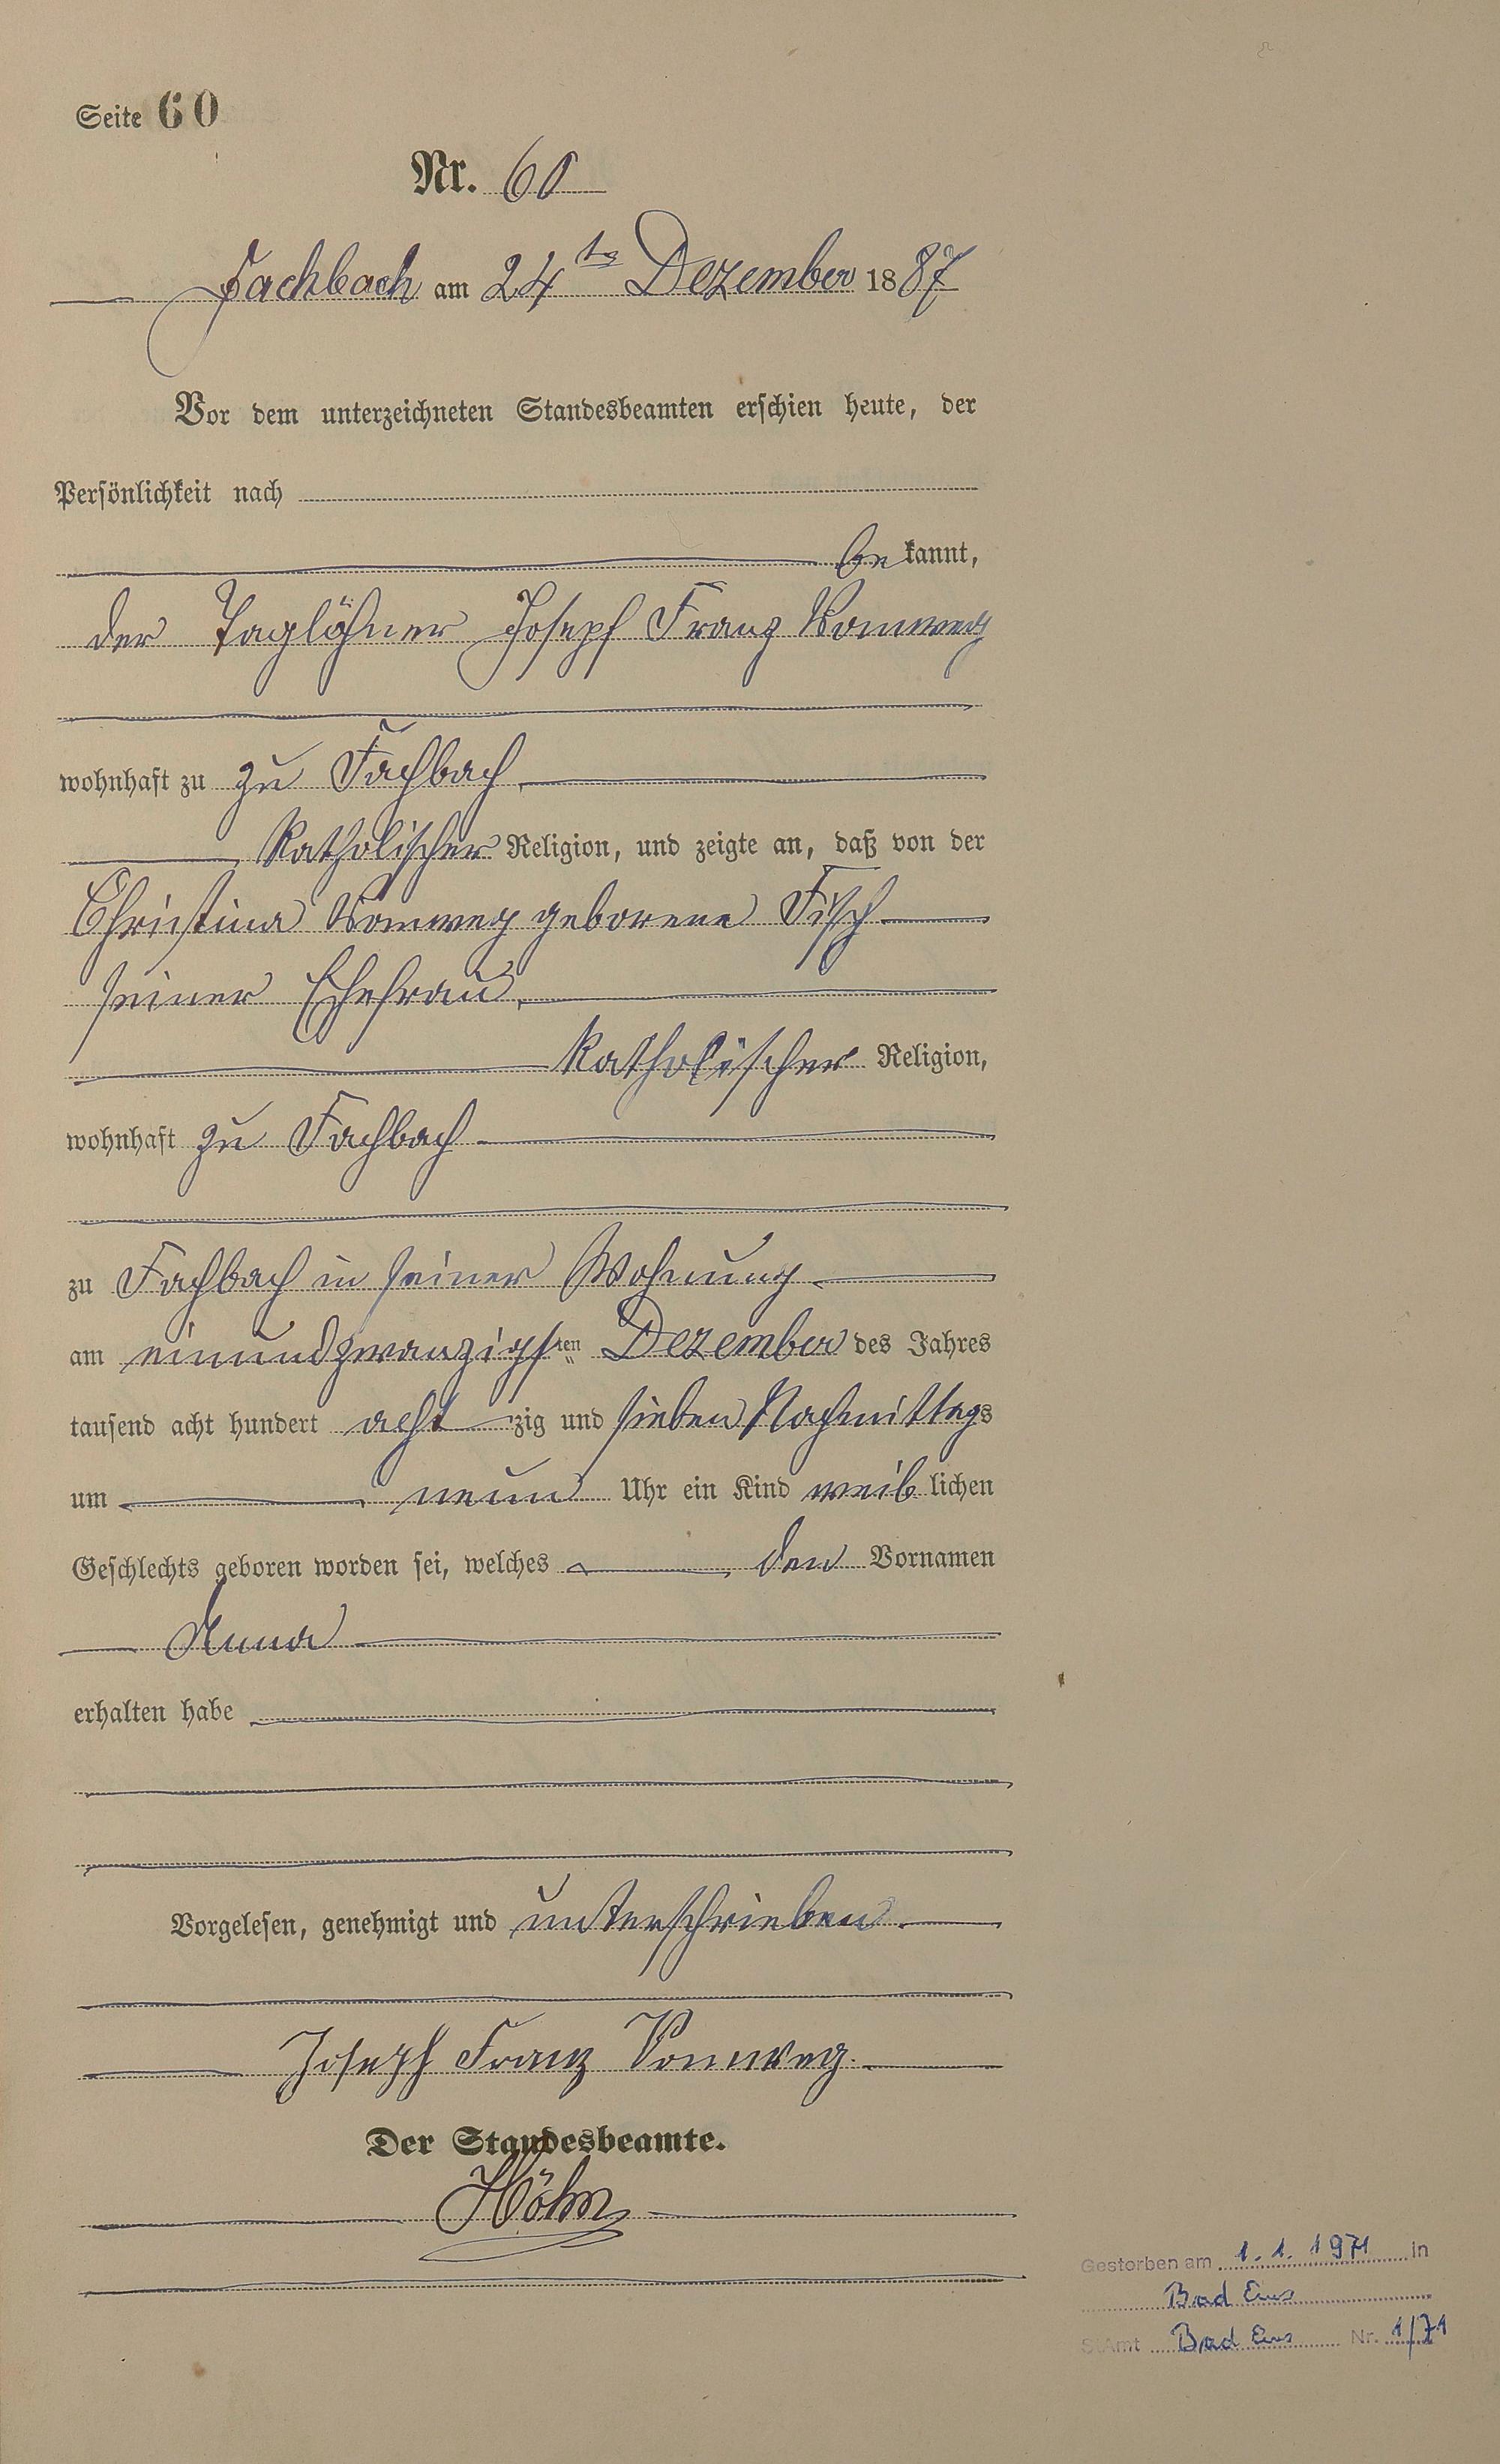 Seite 60
Nr. 60
Fachbach am 24ts Dezember 1887
Vor dem unterzeichneten Standesbeamten erschien heute, der
Persönlichkeit nach
bekannt,
der Taglöhner Joseph Franz Vomweg
wohnhaft zu zu Fachbach
Katholischer Religion, und zeigte an, daß von der
Christina Vomweg geborene Fisch
seiner Ehefrau,
Katholischer Religion,
wohnhaft zu Fachbach
zu Fachbach in seiner Wohnung
am einundzwanzigsten Dezember des Jahres
tausend acht hundert acht zig und sieben Nachmittags
um neun Uhr ein Kind weiblichen
Geschlechts geboren worden sei, welches den Vornamen
Anna
erhalten habe
Vorgelesen, genehmigt und unterschrieben.
Joseph Franz Vomweg.
Der Standesbeamte.
Höhn
Gestorben am 1.1.1971 in
Bad Ems
StAmt Bad Ems Nr. 1/71